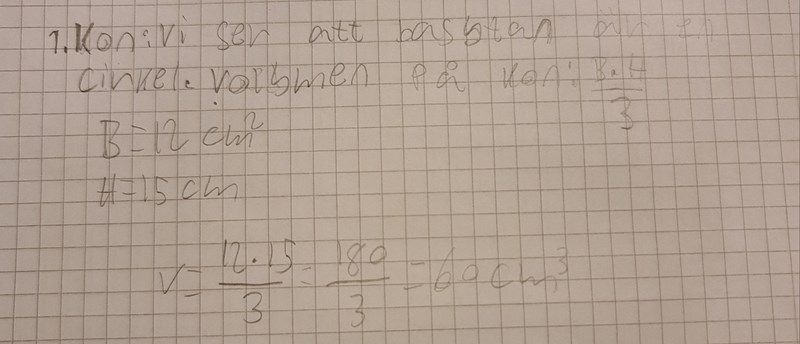 1. Kon: vi ser att basytan är en
cirkel. volymen på kon: B·H/3
B=12 cm²
H=15 cm
V= 12·15/3 = 180/3 = 60 cm³